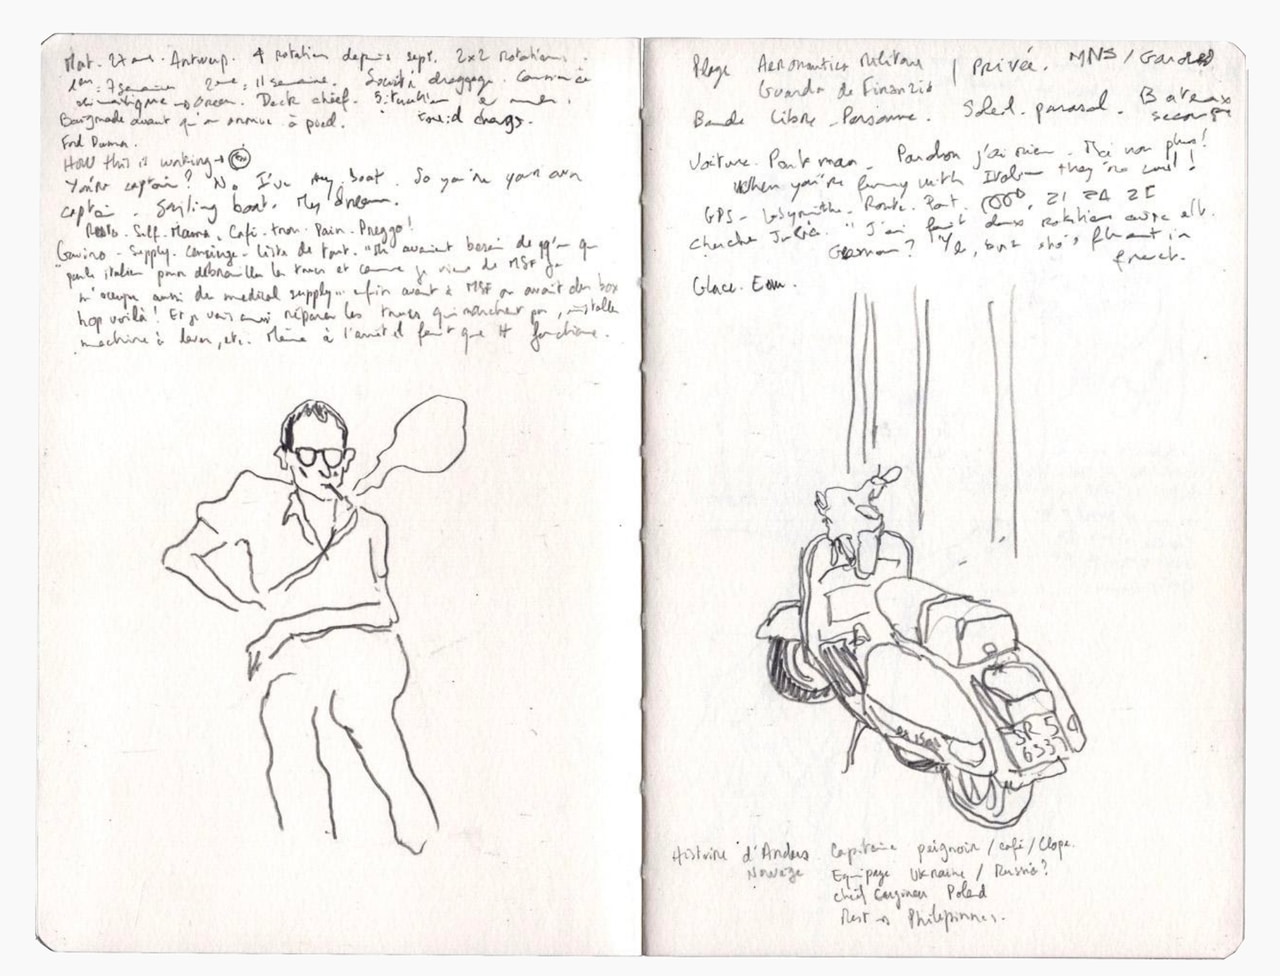 Mat. 27 ans. Antwerp. 4 rotations depuis sept. 2x2 Rotations.
1ère : 7 semaines 2ème : 11 semaine. Société draggage.
climatique → Ocean. Deck chief. Situation
Baignade avant qu'on arrive à pied.
How this is working →
You're captain? No I've my boat. So you're your own
captain. Sayling boat. My dream.
Resto. Self. Mama. Café. Pain. Preggo!
Gavino - Supply. Liste de tout. "Ils avaient besoin de qq'un qui
parle italien pour débrouiller les trucs et comme je viens de MSF je
m'occupe aussi de medical supply... enfin avant à MSF on avait des box
hop voilà! Et je vais aussi réparer les trucs qui marchent pas, installer
machine à laver, etc. Même à l'arrêt il faut que it fonctionne.
Plage Aeronautica Militare / Privée. MNS / Gardes
Guarda de Finanzia
Bande Libre. Personne. Soleil. parasol. Bateaux
secours
Voiture. Pardon j'ai rien. Moi non plus!
When you're funny with Italian they're cool!
GPS - Labyrinthe. Route. Port.
cherche Julia. "J'ai fait deux rotations avec elle.
German? Ye, but she's fluent in
french.
Glace. Eau.
SR 5
6337
Histoire d'Anders Capitaine peignoir / café / Clope.
Norvège Equipage Ukraine / Russie?
chief Engineer Poland
Rest → Philippines.